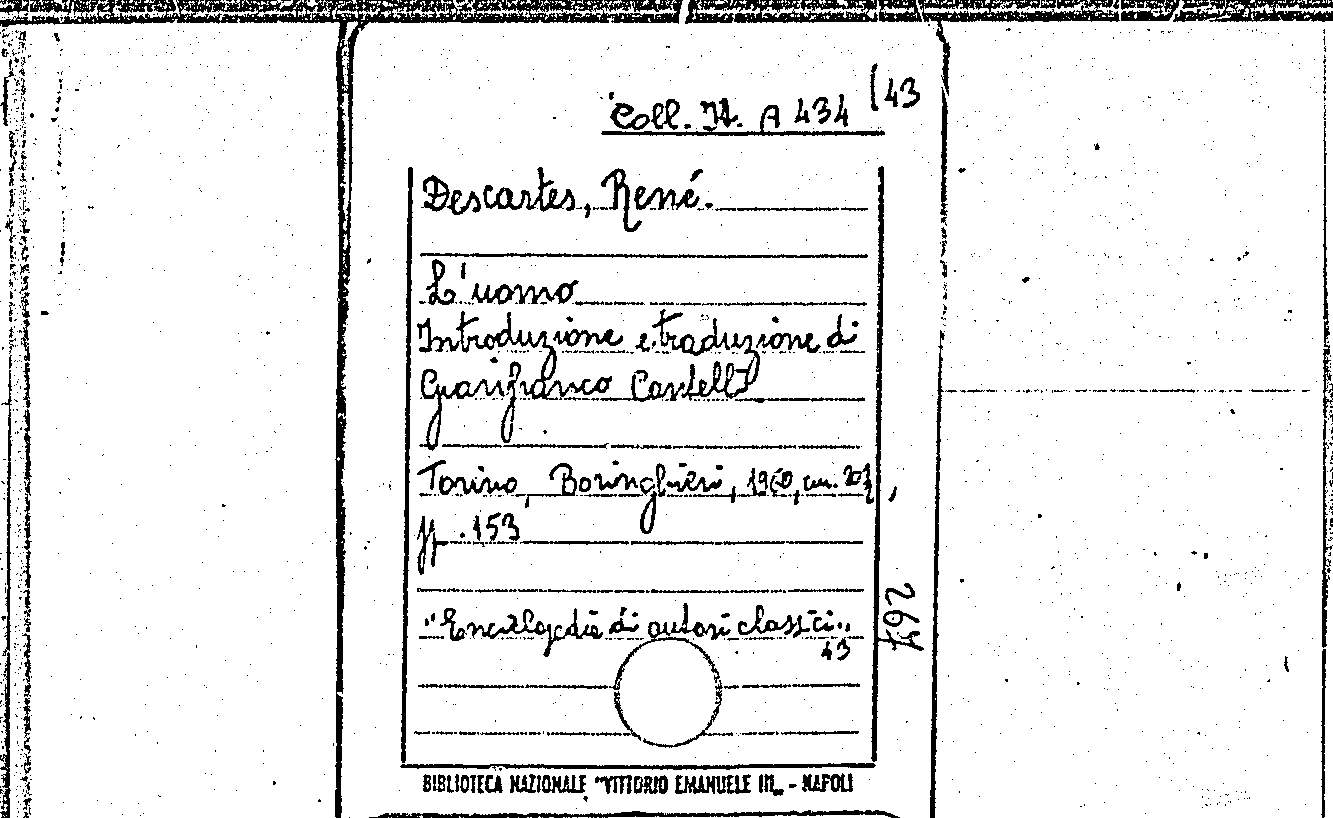 Coll. It. A 434 (43
Descartes, René.
L'uomo
Introduzione e traduzione di
Gianfranco Cantelli
Torino, Boringhieri, 1960, cm. 20½,
pp. 153
"Enciclopedia di autori classici„
43
BIBLIOTECA NAZIONALE "VITTORIO EMANUELE III„ - NAPOLI